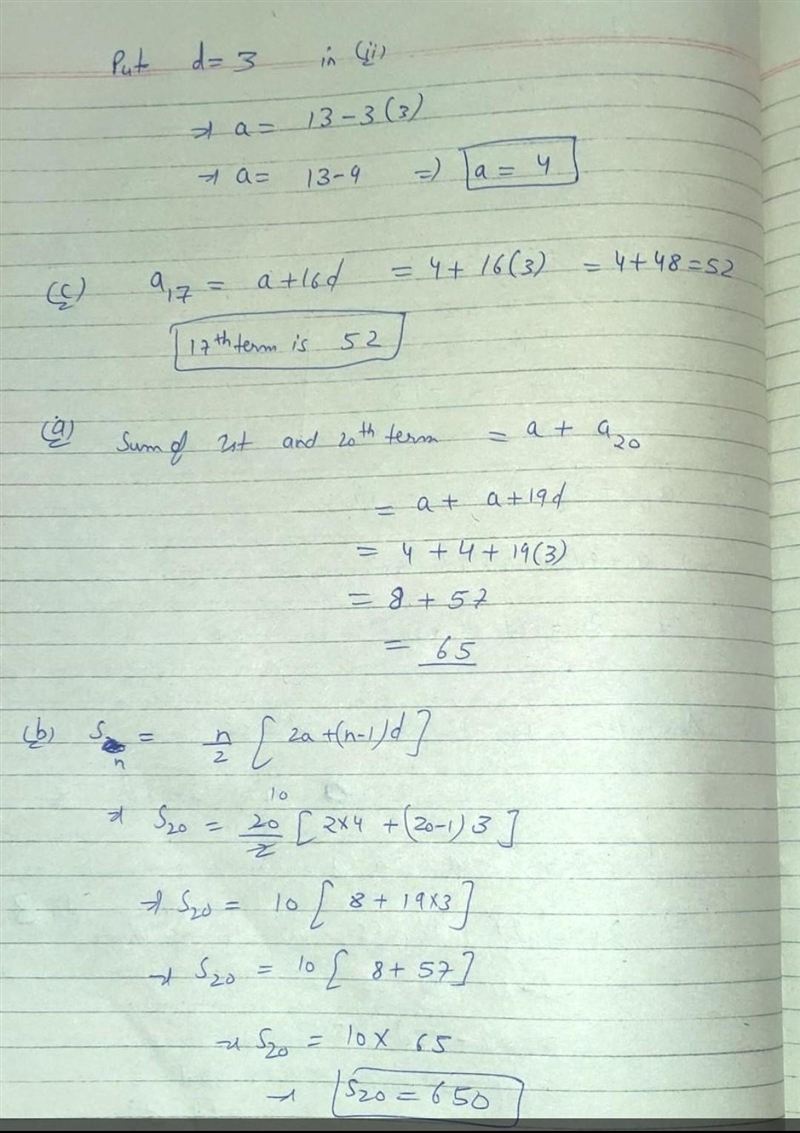 Put d = 3 in (ii)
⇒ a = 13 - 3(3)
⇒ a = 13-9 ⇒ a = 4
(c) a₁₇ = a+16d = 4+ 16(3) = 4+48=52
17th term is 52
(a) Sum of 1st and 20th term = a + a₂₀
= a + a+19d
= 4 + 4 + 19(3)
= 8 + 57
= 65
(b) Sₙ = n/2 [2a+(n-1)d]
⇒ S₂₀ = 20/2 10 [2×4 +(20-1) 3]
⇒ S₂₀ = 10 [8 + 19×3]
⇒ S₂₀ = 10 [8+ 57]
⇒ S₂₀ = 10× 65
⇒ S₂₀ = 650